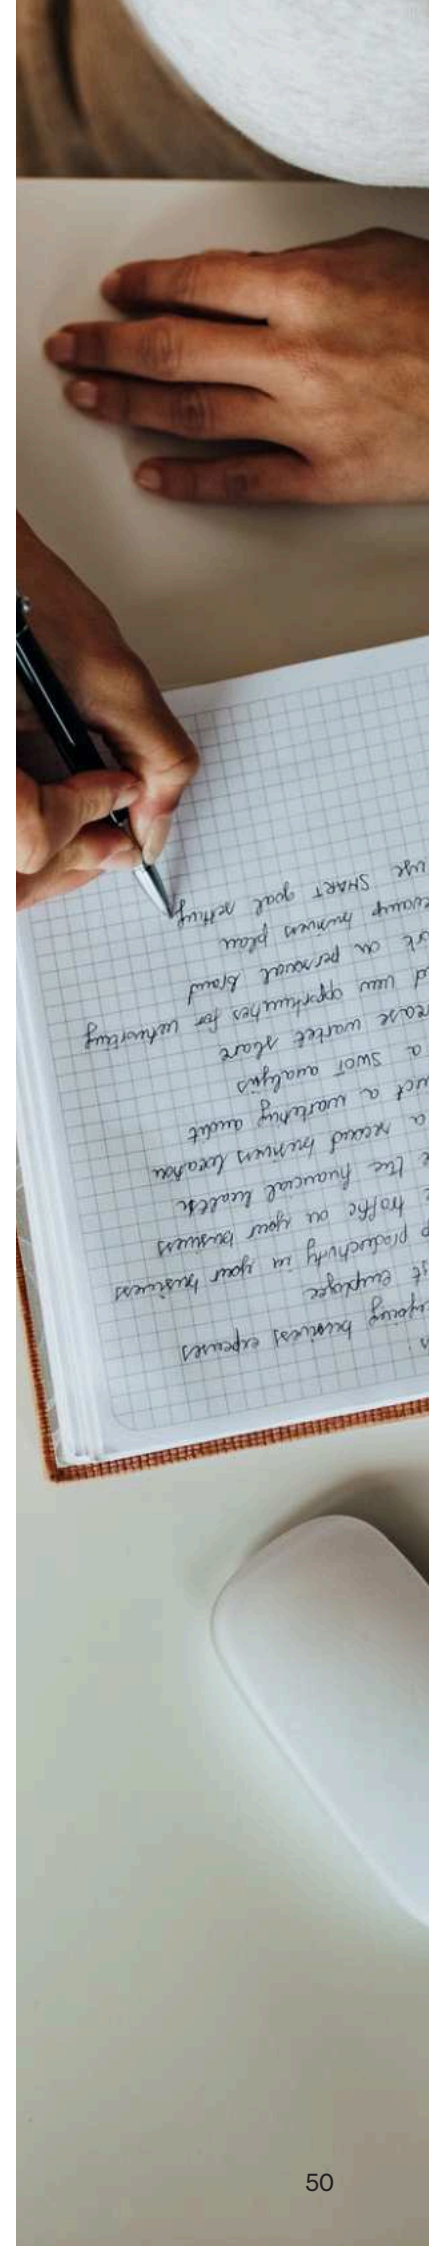 s:
going business expenses
st employee
p productivity in your business
e traffic on your business
e the financial health
a second business location
uct a marketing audit
a SWOT analysis
rease market share
d new opportunities for networking
ork on personal brand
evamp business plan
use SMART goal setting
50